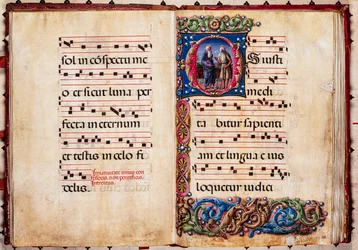 sol in cōspectu me
o et sicut luna per
fecta in eternum
et testis in celo fi
delis.
O s iusti
medi
tabitur sapienti
am et lingua eius
loquetur iudici